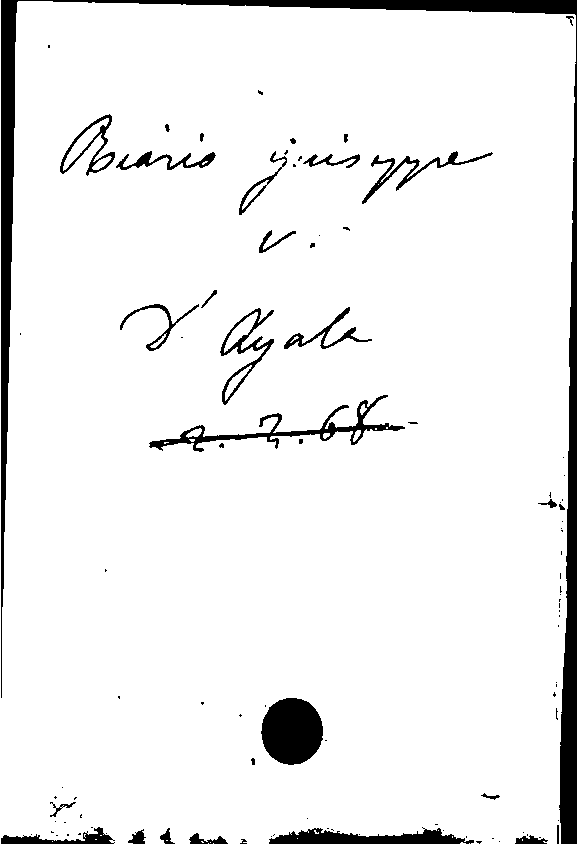 Riario Giuseppe
v.
D'Ayala
2.2.68